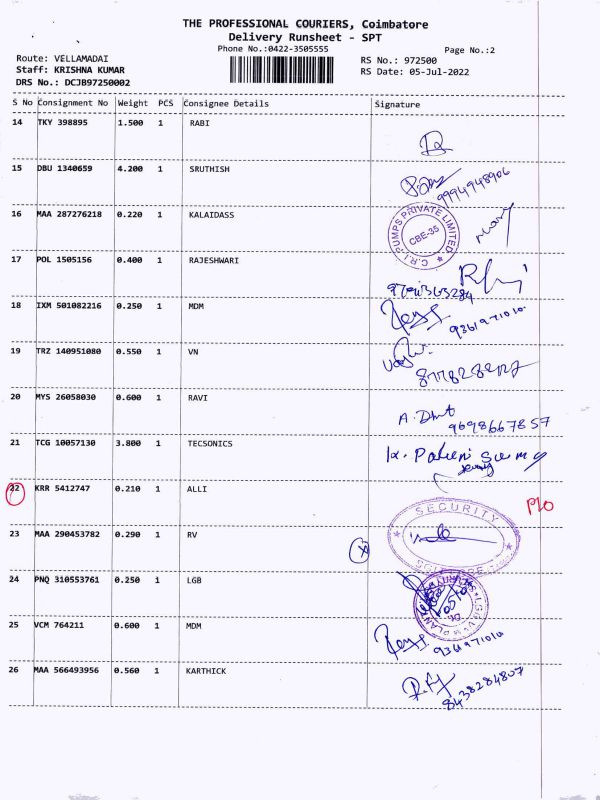 THE PROFESSIONAL COURIERS, Coimbatore
Delivery Runsheet - SPT
Phone No.:0422-3505555
Page No.:2
Route: VELLAMADAI
RS No.: 972500
Staff: KRISHNA KUMAR
RS Date: 05-Jul-2022
DRS No.: DCJB97250002
S No Consignment No Weight PCS Consignee Details Signature
14 TKY 398895 1.500 1 RABI
15 DBU 1340659 4.200 1 SRUTHISH
9994948906
16 MAA 287276218 0.220 1 KALAIDASS
C.R.I PUMPS PRIVATE LIMITED
CBE-35
17 POL 1505156 0.400 1 RAJESHWARI
18 IXM 501082216 0.250 1 MDM
19 TRZ 140951080 0.550 1 VN
20 MYS 26058030 0.600 1 RAVI
9698667857
21 TCG 10057130 3.800 1 TECSONICS
22 KRR 5412747 0.210 1 ALLI
SECURITY
23 MAA 290453782 0.290 1 RV
24 PNQ 310553761 0.250 1 LGB
25 VCM 764211 0.600 1 MDM
26 MAA 566493956 0.560 1 KARTHICK
8438284807